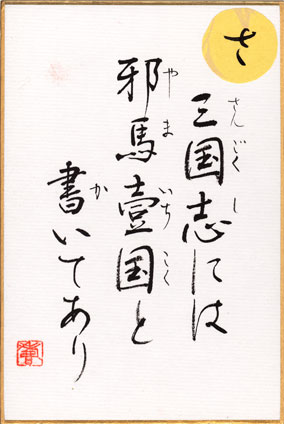 さ
三国志には
さんごくし
邪馬壹国と
やまいちこく
書いてあり
か